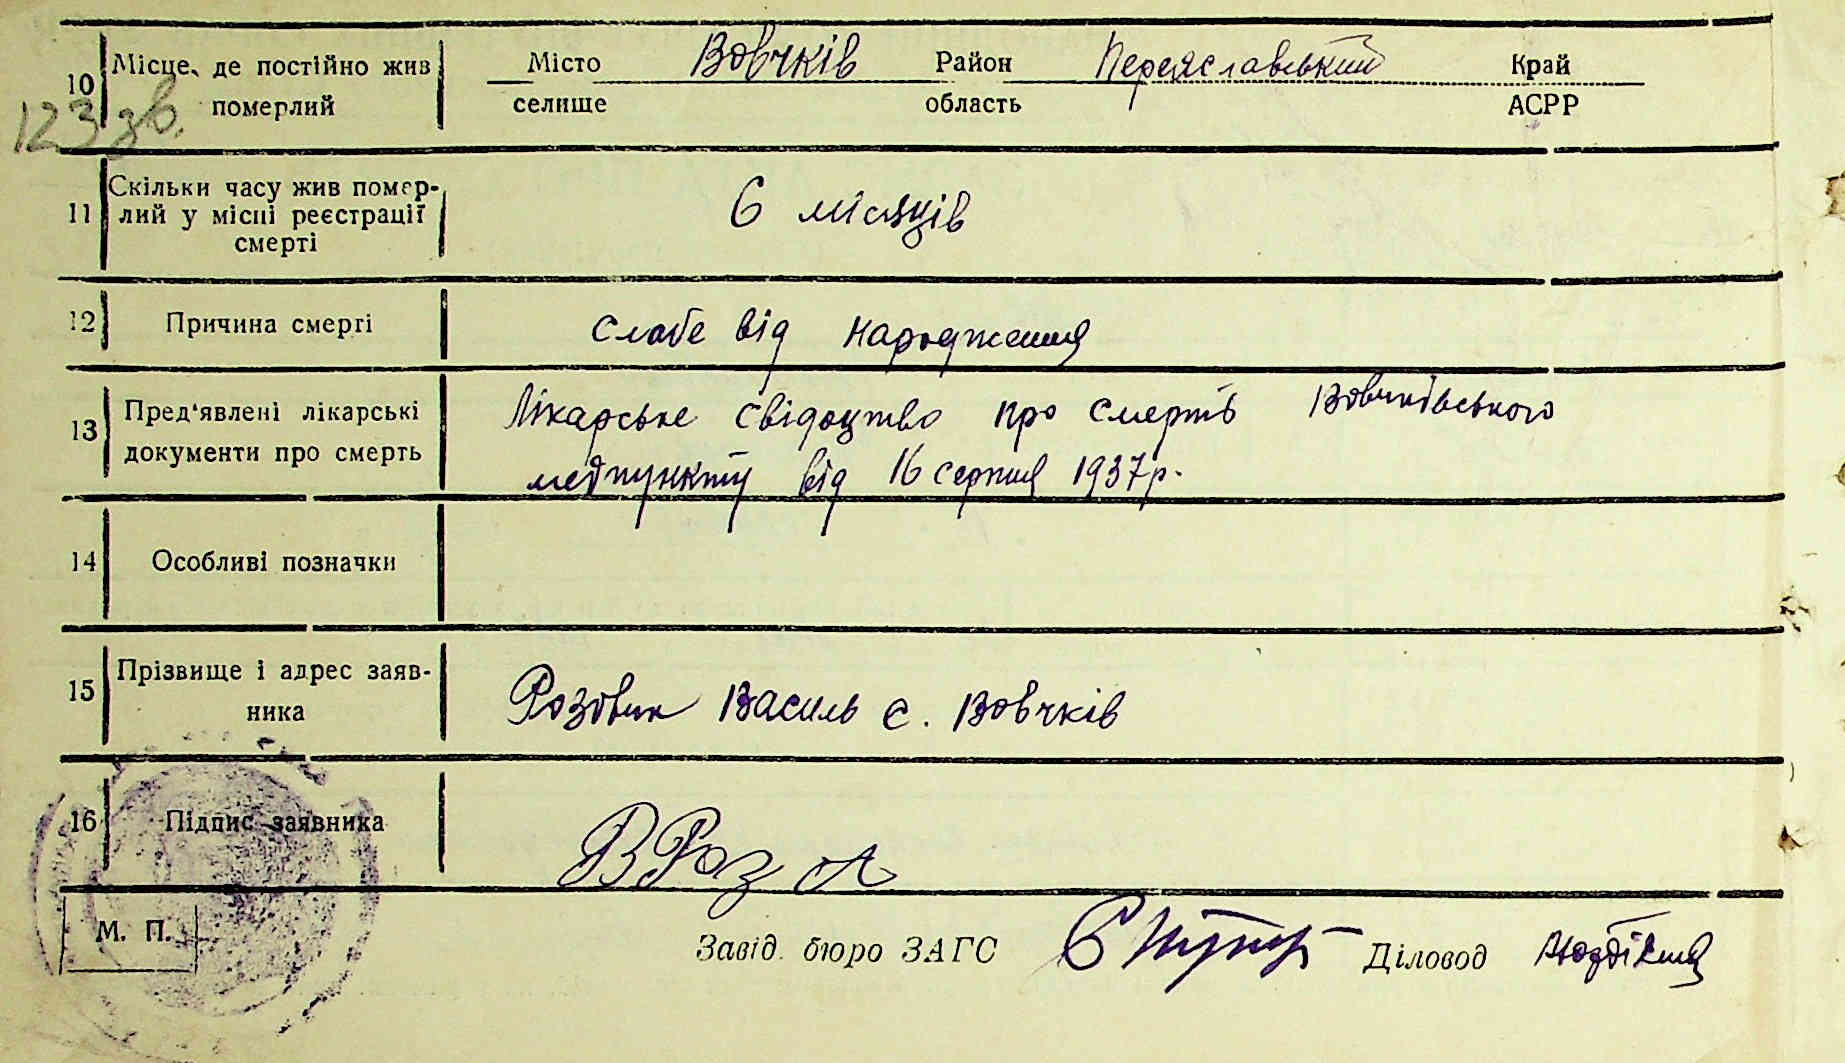 10 Місце, де постійно жив Місто Вовчків Район Переяславський Край
123 зв. померлий селище область АСРР
11 Скільки часу жив помер-
лий у місці реєстрації 6 місяців
смерті
12 Причина смерті слабе від народження
13 Пред'явлені лікарські Лікарське свідоцтво про смерть Вовчківського
документи про смерть медпункту від 16 серпня 1937 р.
14 Особливі позначки
15 Прізвище і адрес заяв- Розовик Василь с. Вовчків
ника
16 Підпис заявника В Роз
М. П. Завід. бюро ЗАГС Діловод